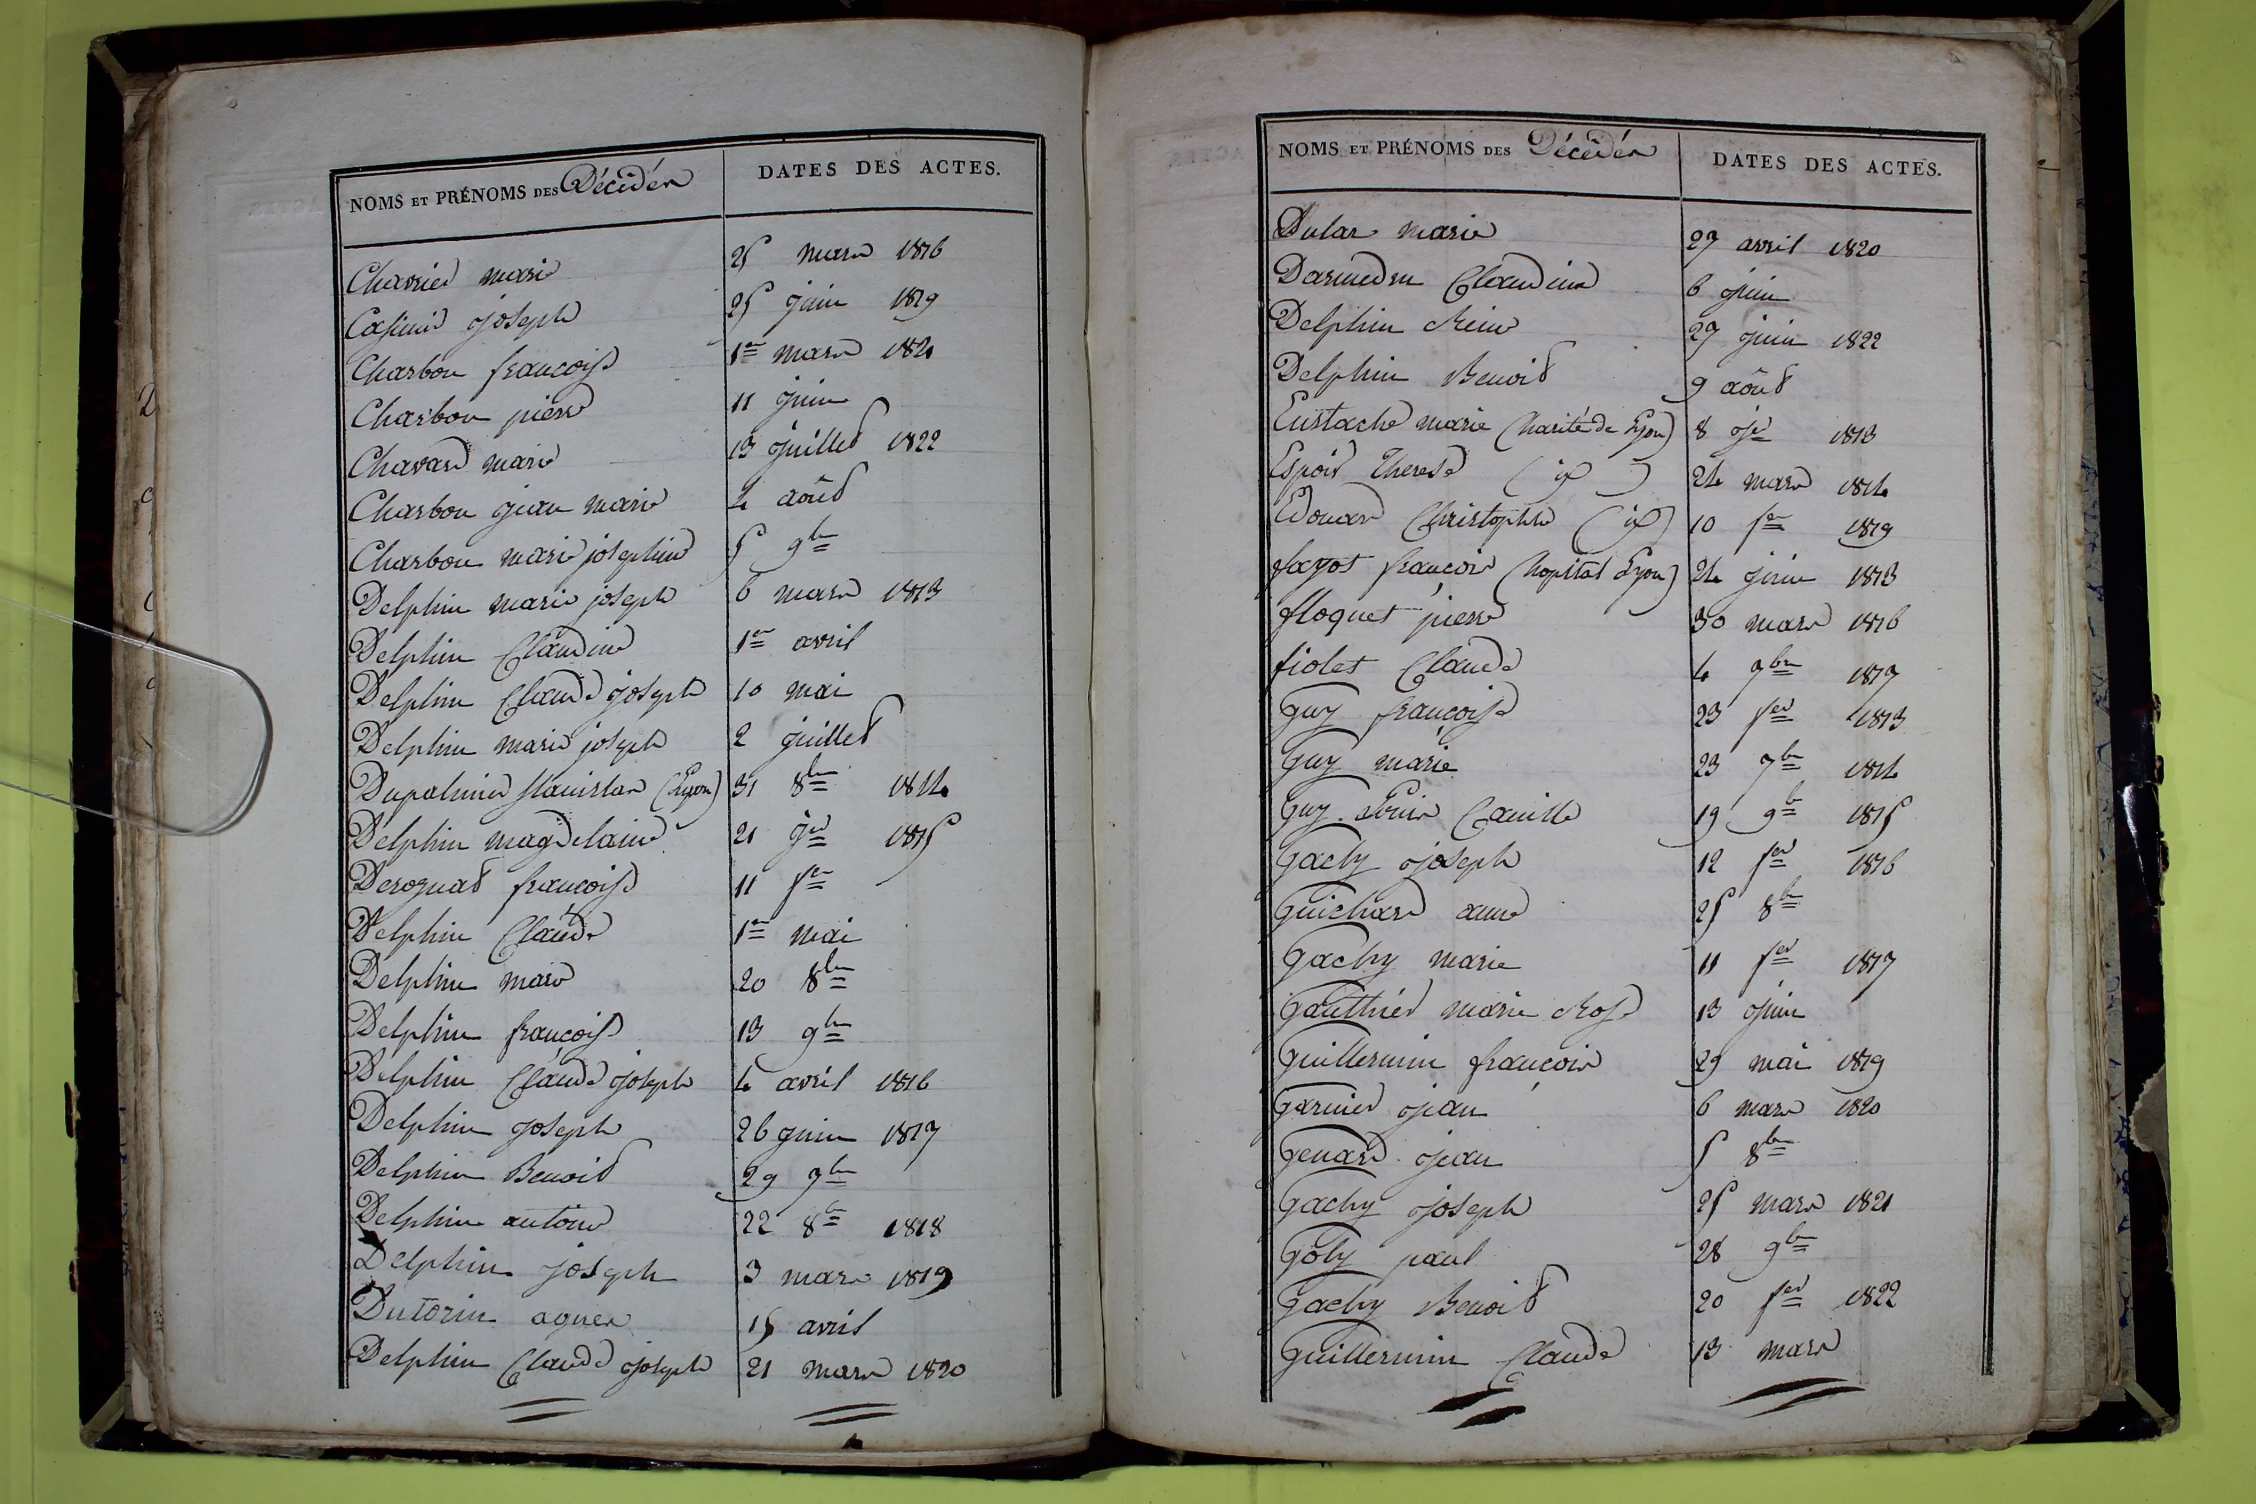 NOMS ET PRÉNOMS DES Décédés DATES DES ACTES.
Charrier marie 25 mars 1816
Casimir joseph 25 juin 1819
Charbon françoise 1er mars 1821
Charbon pierre 11 juin
Chavard marie 13 juillet 1822
Charbon jean marie 2 août
Charbon marie josephine 5 9bre
Delphin marie joseph 6 mars 1813
Delphin Claudine 1er avril
Delphin Claude joseph 10 mai
Delphin marie joseph 2 juillet
Dupalmier stanislas (Lyon) 31 8bre 1814
Delphin magdelaine 21 jer 1815
Derognat françoise 11 fer
Delphin Claude 1er mai
Delphin marie 20 8bre
Delphin françoise 13 9bre
Delphin Claude joseph 4 avril 1816
Delphin joseph 26 juin 1817
Delphin Benoit 29 9bre
Delphin antoine 22 8bre 1818
Delphin joseph 3 mars 1819
Dutorin agnes 15 avril
Delphin Claude joseph 21 mars 1820
NOMS ET PRÉNOMS DES Décédés DATES DES ACTES.
Dular marie 27 avril 1820
Claudine 6 juin
Delphin Reine 27 juin 1822
Delphin Benoit 9 août
Eustache marie (Charité de Lyon) 8 jer 1813
Espoir Therese (id) 24 mars 1814
Edouard Christophe (id) 10 fer 1819
fayot françois (hopital Lyon) 24 juin 1813
floquet pierre 30 mars 1816
fiolet Claude 4 7bre 1817
Guy françoise 23 fer 1813
Guy marie 23 7bre 1814
Guy Louis Camille 19 9bre 1815
Gachy joseph 12 fer 1816
Guichard anne 25 8bre
Gachy marie 11 fer 1817
Gauthier marie Rose 13 juin
Guillermin françois 29 mai 1819
Garnier jean 6 mars 1820
Genard jean 5 8bre
Gachy joseph 25 mars 1821
Goly paul 28 9bre
Gachy Benoit 20 fer 1822
Guillermin Claude 13 mars